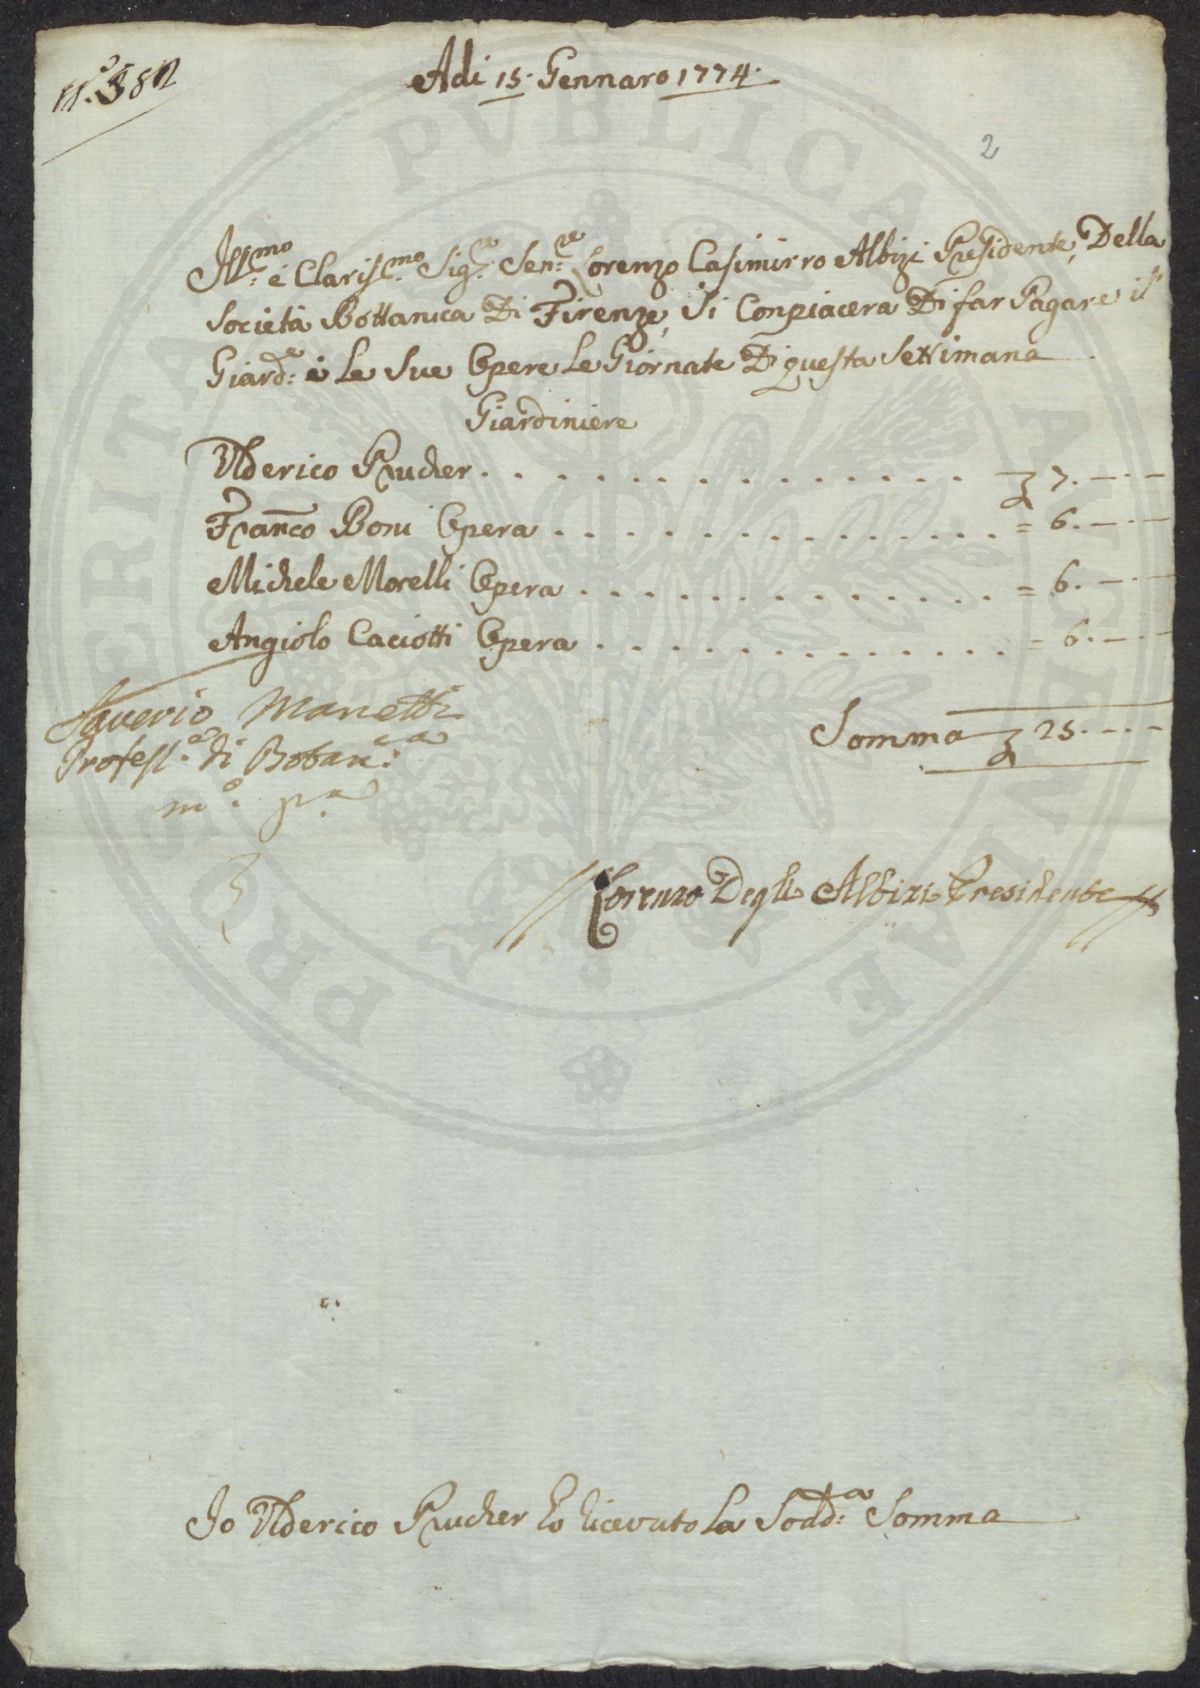 N.º 382
Adi 15. Gennaro 1774.
2
Ill.mo é Clariss.mo Sig.e Sen.re Lorenzo Casimirro Albizi Presidente, Della
Società Bottanica Di Firenze, Si Conpiacera Di far Pagare il
Giard.e é Le Sue Opere Le Giornate Di questa Settimana
Giardiniere
Ulderico Prucher . . . . . . . . . . . . . . 7. — . —
Fran.co Boni Opera . . . . . . . . . . . . . . = 6. — . —
Michele Morelli Opera . . . . . . . . . . . . . = 6. — . —
Angiolo Caciotti Opera . . . . . . . . . . . . . = 6. — . —
Somma 25. — . —
Saverio Manetti
Profess.e di Botan.ca
m.o p.a
Lorenzo Degli Albizi Presidente
Io Ulderico Prucher ho ricevuto La Sodd.a Somma
PROSPERITATI PVBLICAE AVGENDAE